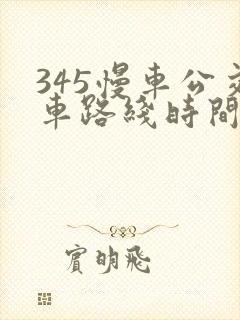 345慢車公交
車路綫時間
賓明飛